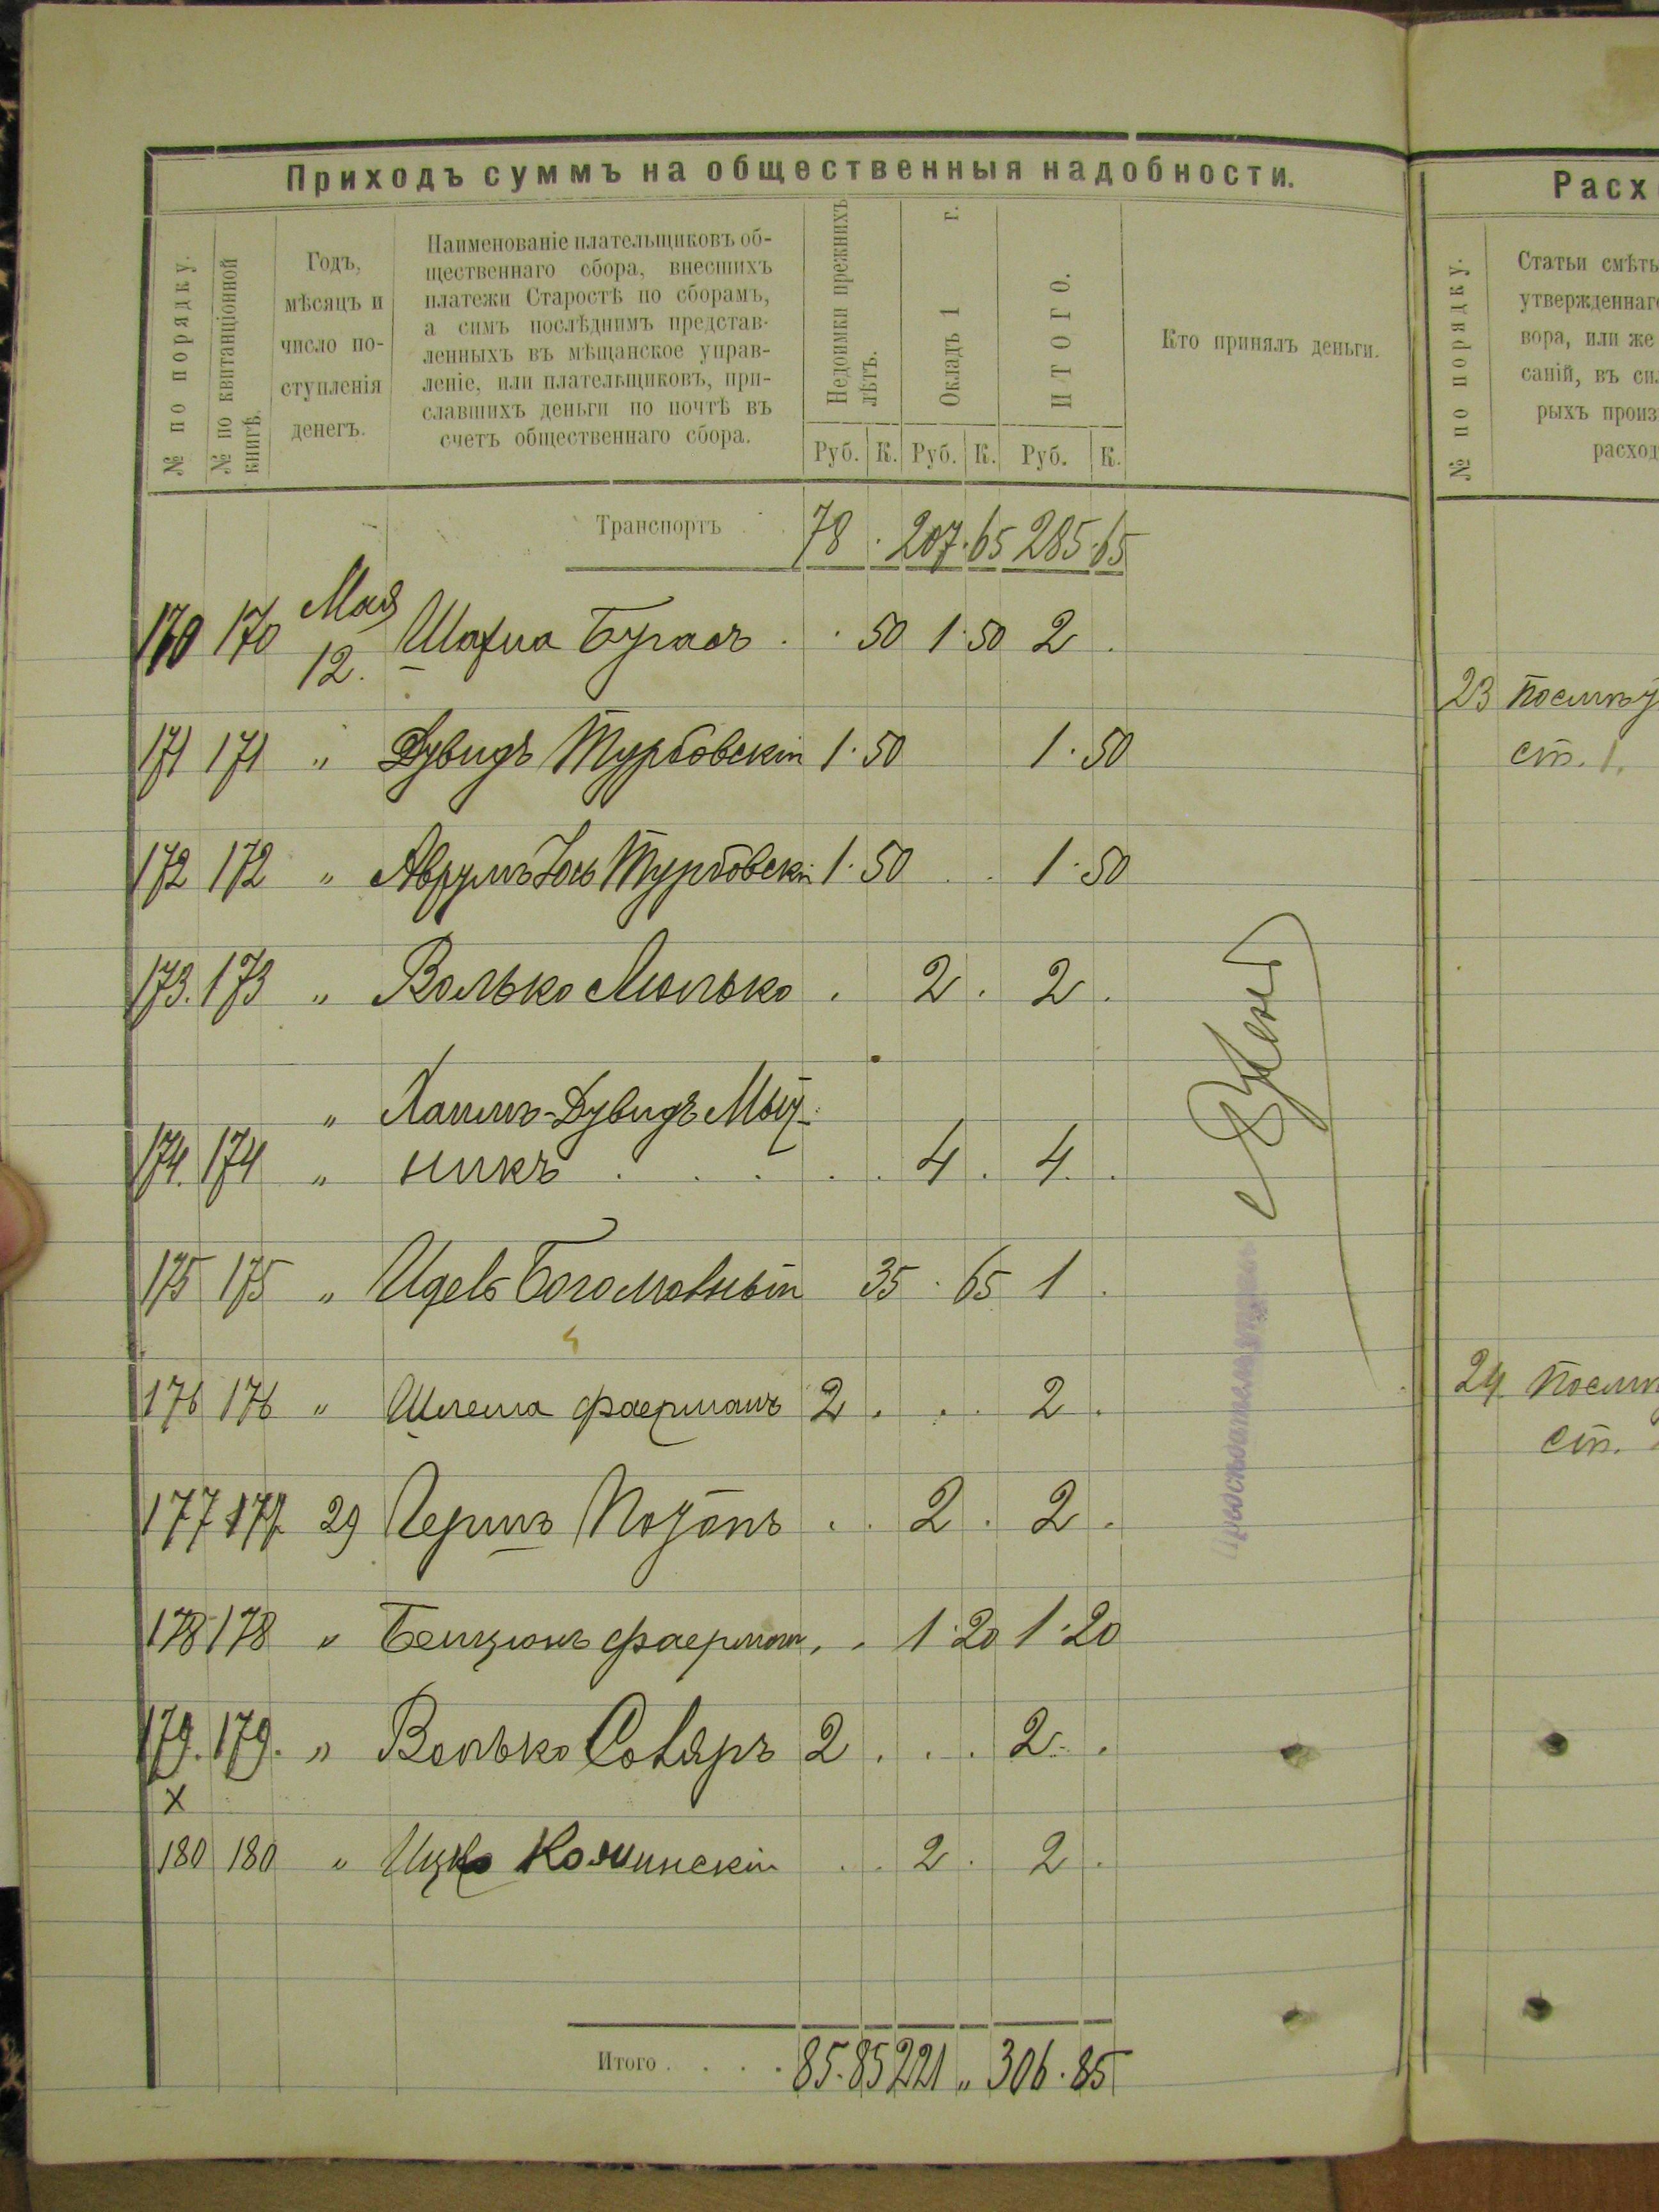 Приходъ суммъ на общественныя надобности.
№ по порядку.
№ по квитанціонной
книгѣ.
Годъ,
мѣсяцъ и
число по-
ступленія
денегъ.
Наименованіе плательщиковъ об-
щественнаго сбора, внесшихъ
платежи Старостѣ по сборамъ,
а симъ послѣднимъ представ-
ленныхъ въ мѣщанское управ-
леніе, или плательщиковъ, при-
славшихъ деньги по почтѣ въ
счетъ общественнаго сбора.
Недоимки прежнихъ
лѣтъ.
Окладъ 1 г.
ИТОГО.
Руб. К. Руб. К. Руб. К.
Кто принялъ деньги.
Транспортъ 78 . 207.65 285.65
170 170 Мая
12.  . . 50 1.50 2 .
171 171 „ Дувидъ Турбовскій 1.50 1.50
172 172 „ Аврумъ Турбовскій 1.50 . . 1.50
173. 173 „ Волько Люлько . 2 . 2 .
„ Хаимъ-Дувидъ
174. 174 „ никъ . . . . . 4 . 4 . .
175 175 „ Идель 35 . 65 1 .
176 176 „ Шлема Фаерманъ 2 . . . 2 .
177 177 29 Гершъ . . 2 . 2 .
178 178 „ Бенціонъ Фаерман . . 1.20 1.20
179. 179. „ Волько 2 . . . 2 .
х
180 180 „ Ицко . . 2 . 2 .
Итого . . . . 85.85 221 „ 306.85
Расх
№ по порядку.
Статьи смѣты
утвержденнаго
вора, или же
саній, въ сил
рыхъ произ
расход
23
ст. 1.
24
ст.